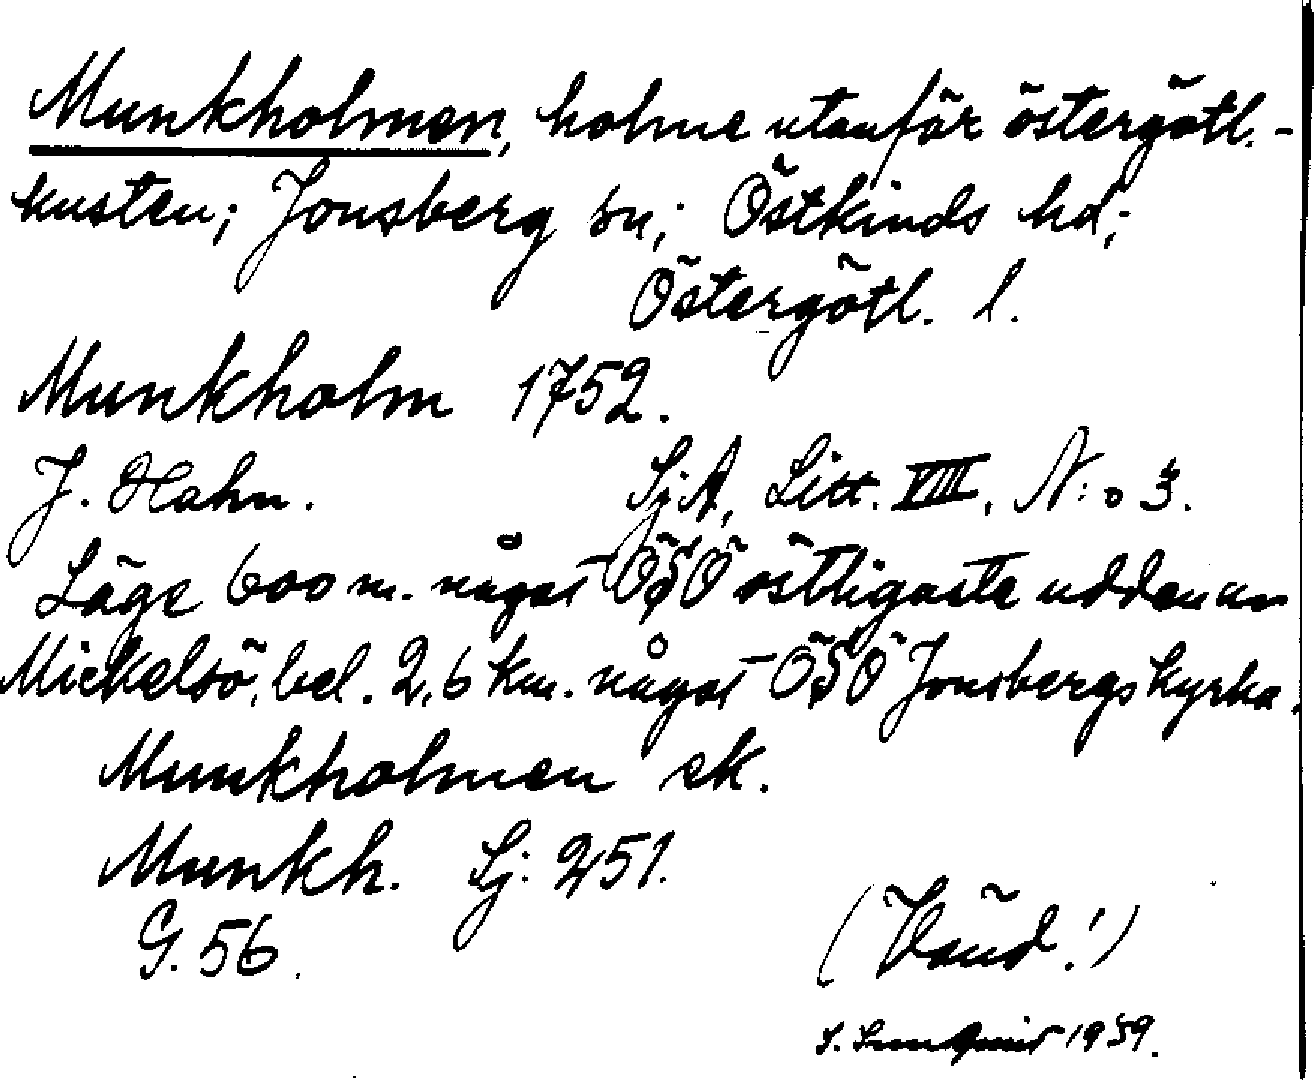 Munkholmen, holme utanför östergötl.-
kusten; Jonsberg sn; Östkinds hd;
Östergötl. l.
Munkholm 1752.
J. Hahn. SjA, Litt. VIII, N:o 3.
Läge 600 m. något ÖSÖ östligaste udden av
Mickelsö, bel. 2,6 km. något ÖSÖ Jonsbergs kyrka.
Munkholmen ek.
Munkh. Sj: 251.
G. 56.
(Vänd!)
S. 1959.